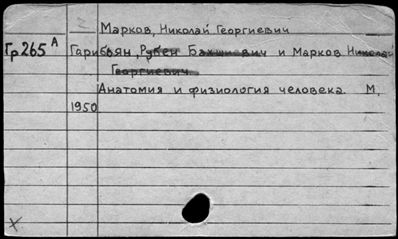 Марков, Николай Георгиевич
Гр 265 А Гарибьян, Рубен Бахшиевич и Марков Николай
Георгиевич.
Анатомия и физиология человека. М,
1950